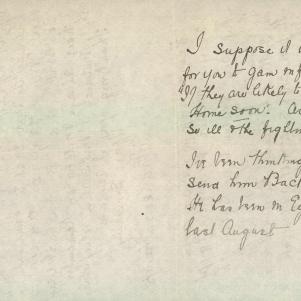 I suppose it i
for you to gain inf
"If they are likely to
Home soon". As
so ill & the fightin
I've been thinking
send him Back
He has been in Eg
last August